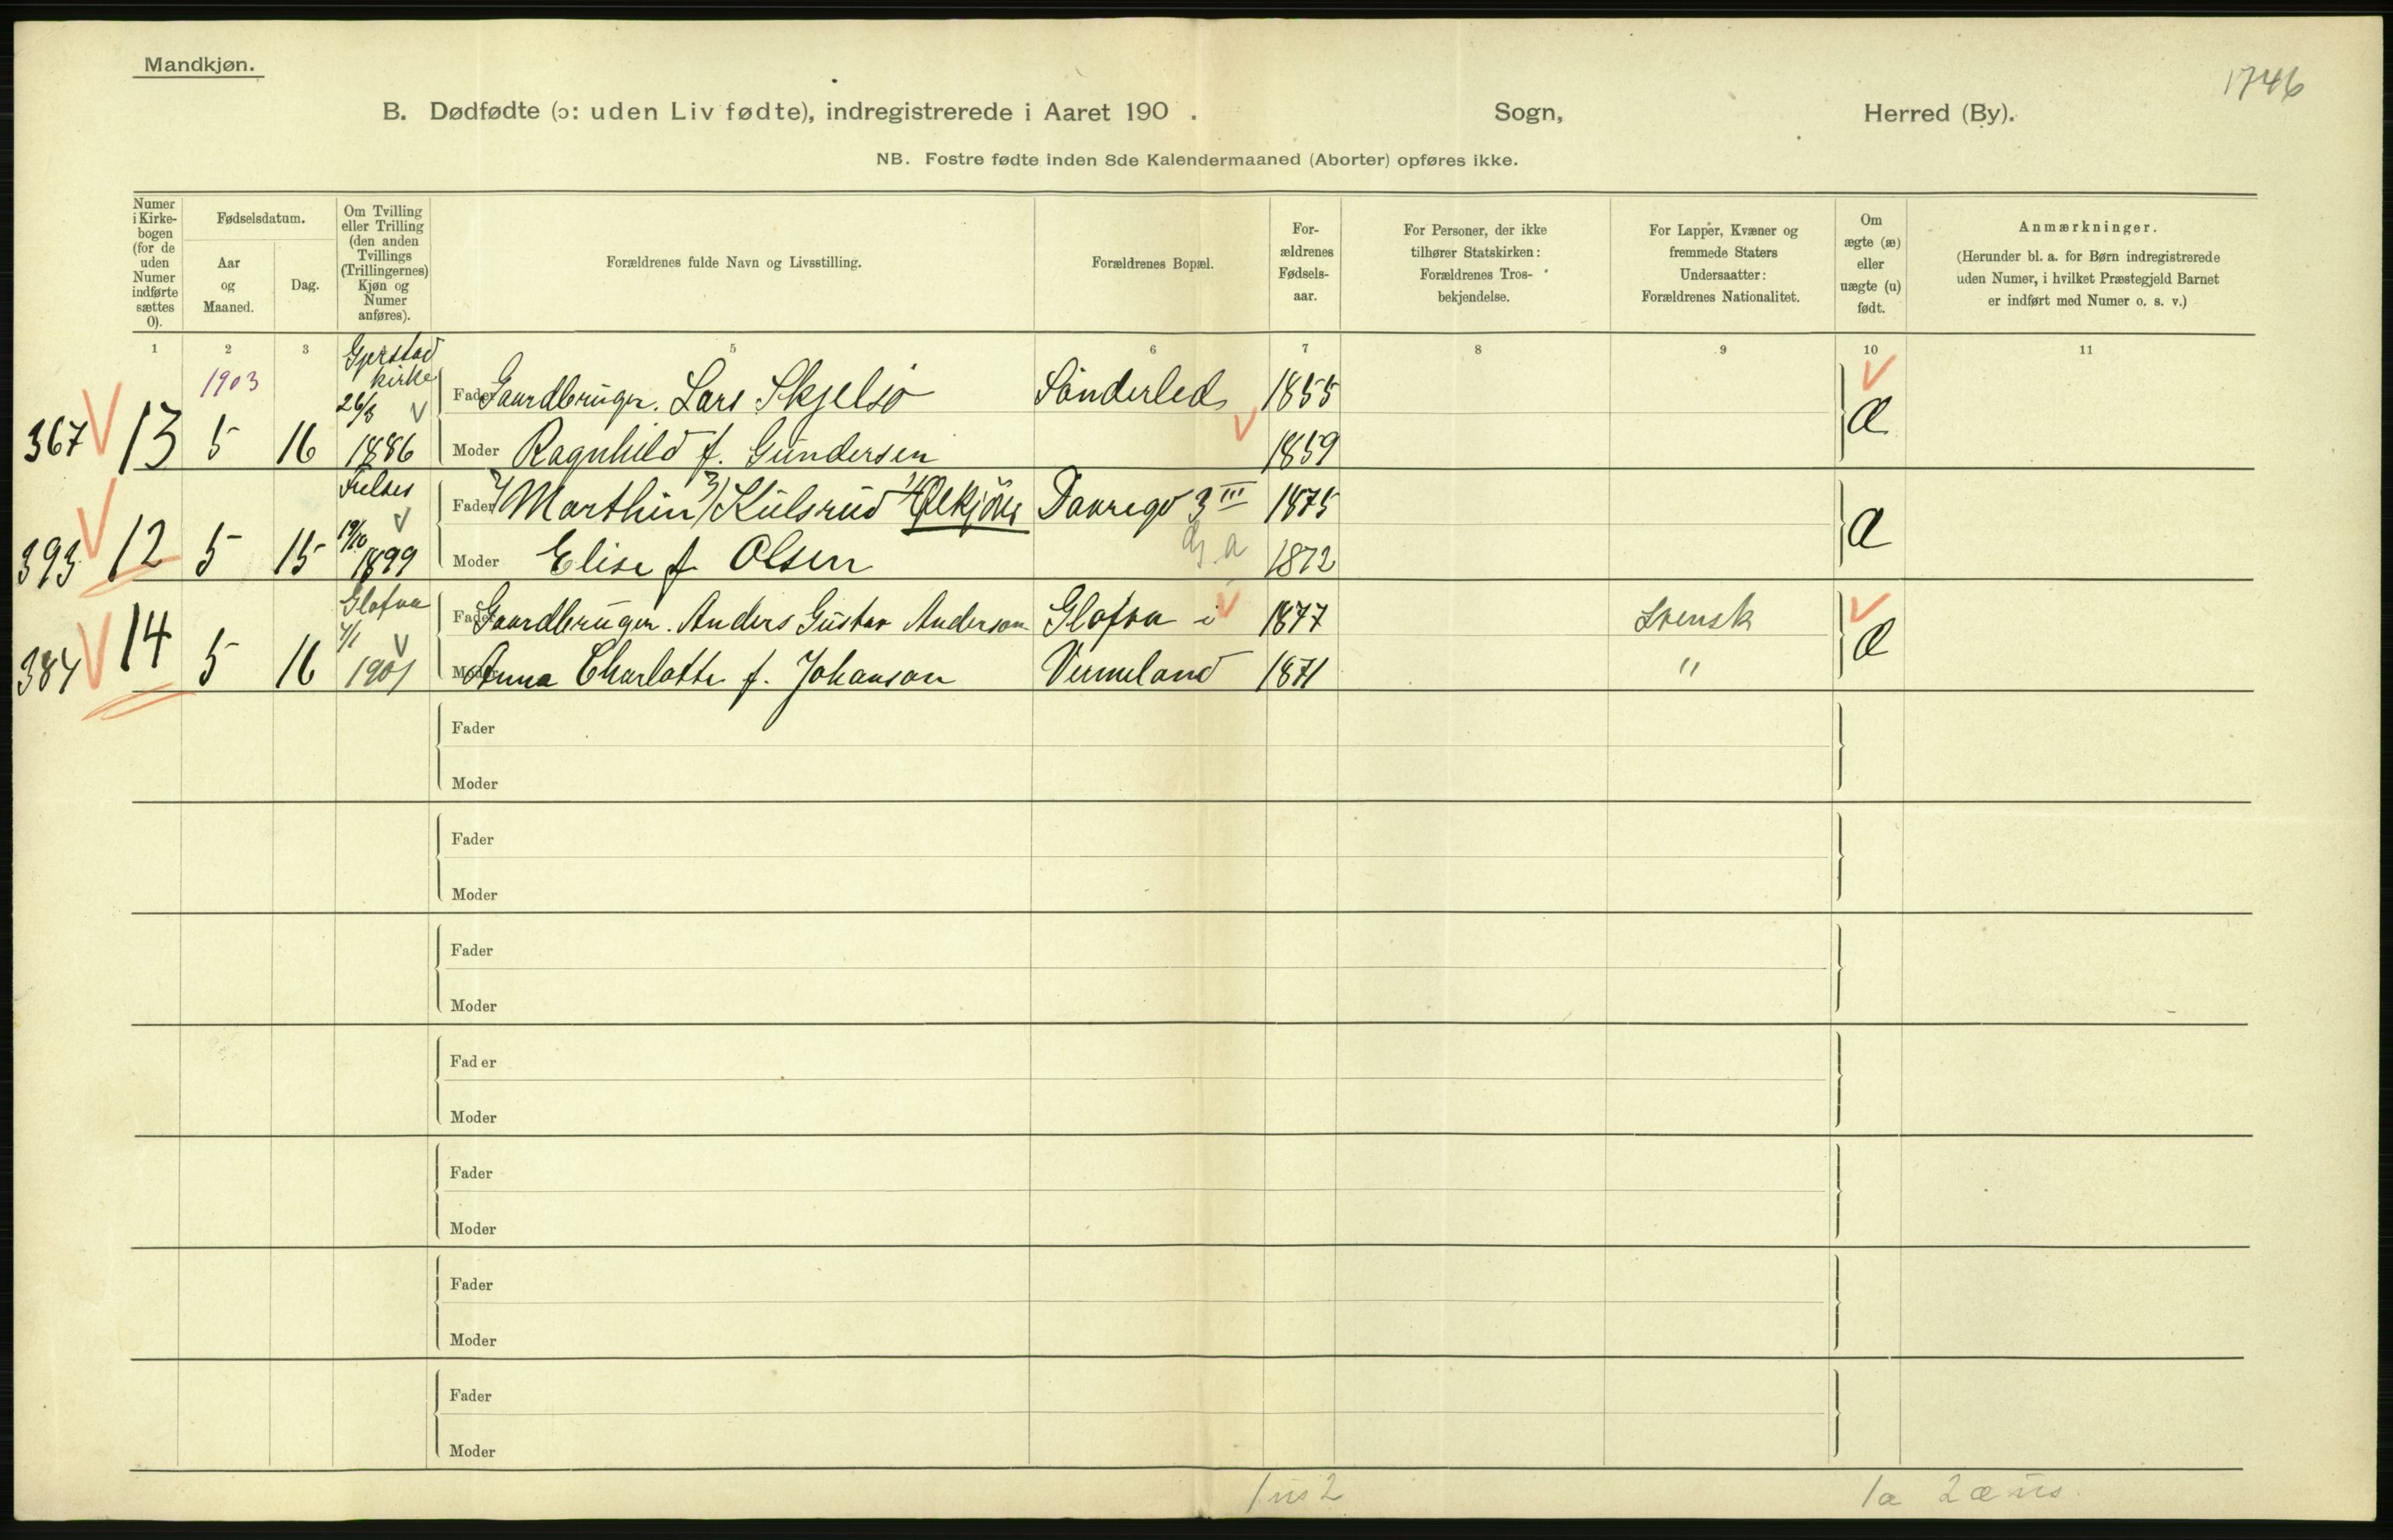 Mandkjøn.
1746
B. Dødfødte (ɔ: uden Liv fødte), indregistrerede i Aaret 190 . Sogn, Herred (By).
NB. Fostre fødte inden 8de Kalendermaaned (Aborter) opføres ikke.
Numer i Kirkebogen (for de uden Numer indførte sættes 0).
Fødselsdatum.
Aar og Maaned.
Dag.
Om Tvilling eller Trilling (den anden Tvillings (Trillingernes) Kjøn og Numer anføres).
Forældrenes fulde Navn og Livsstilling.
Forældrenes Bopæl.
For-
ældrenes
Fødsels-
aar.
For Personer, der ikke
tilhører Statskirken:
Forældrenes Tros-
bekjendelse.
For Lapper, Kvæner og
fremmede Staters
Undersaatter:
Forældrenes Nationalitet.
Om
ægte (æ)
eller
uægte (u)
født.
Anmærkninger.
(Herunder bl. a. for Børn indregistrerede
uden Numer, i hvilket Præstegjeld Barnet
er indført med Numer o. s. v.)
1 2 3 5 6 7 8 9 10 11
1903 Gjerstad kirke 26/3 1886
Fader Gaardbruger. Lars Skjelsø Sönderled 1855
367 13 5 16 Moder Ragnhild f. Gundersen 1859 Æ
Fader Marthin Kulsrud 3 III 1875
393 12 5 15 19/10 1899 Moder Elise f. Olsen 1872 Æ
Glafva
Fader Gaardbruger. Anders Gustav Anderson Glafva i 1877 Svensk
384 14 5 16 1/1 1901 Moder Anna Charlotte f. Johanson Vermeland 1871 " Æ
Fader
Moder
Fader
Moder
Fader
Moder
Fader
Moder
Fader
Moder
Fader
Moder
Fader
Moder